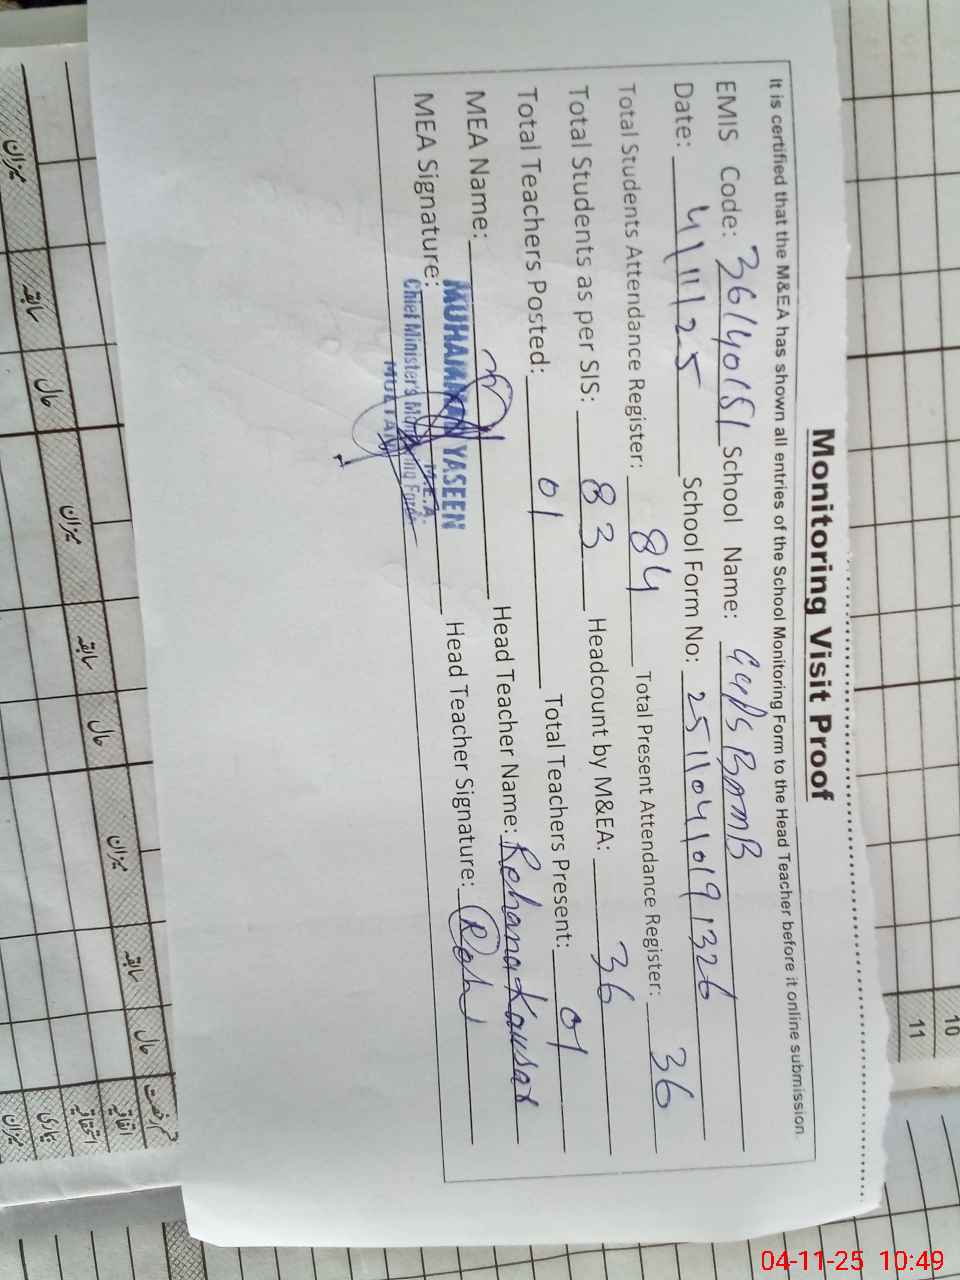 Monitoring Visit Proof
It is certified that the M&EA has shown all entries of the School Monitoring Form to the Head Teacher before it online submission
EMIS Code: 36140151 School Name: GGPS BOMB
Date: 4/11/25 School Form No: 25110410191326
Total Students Attendance Register: 84 Total Present Attendance Register: 36
Total Students as per SIS: 83 Headcount by M&EA: 36
Total Teachers Posted: 01 Total Teachers Present: 01
MEA Name: Head Teacher Name: Rehana Kausar
MEA Signature: Head Teacher Signature: Reh
YASEEN
M.E.A.
Chief Minister's Monitoring Force
MULTAN
میزان سابقہ حال میزان سابقہ حال میزان سابقہ حال
10
11
04-11-25 10:49